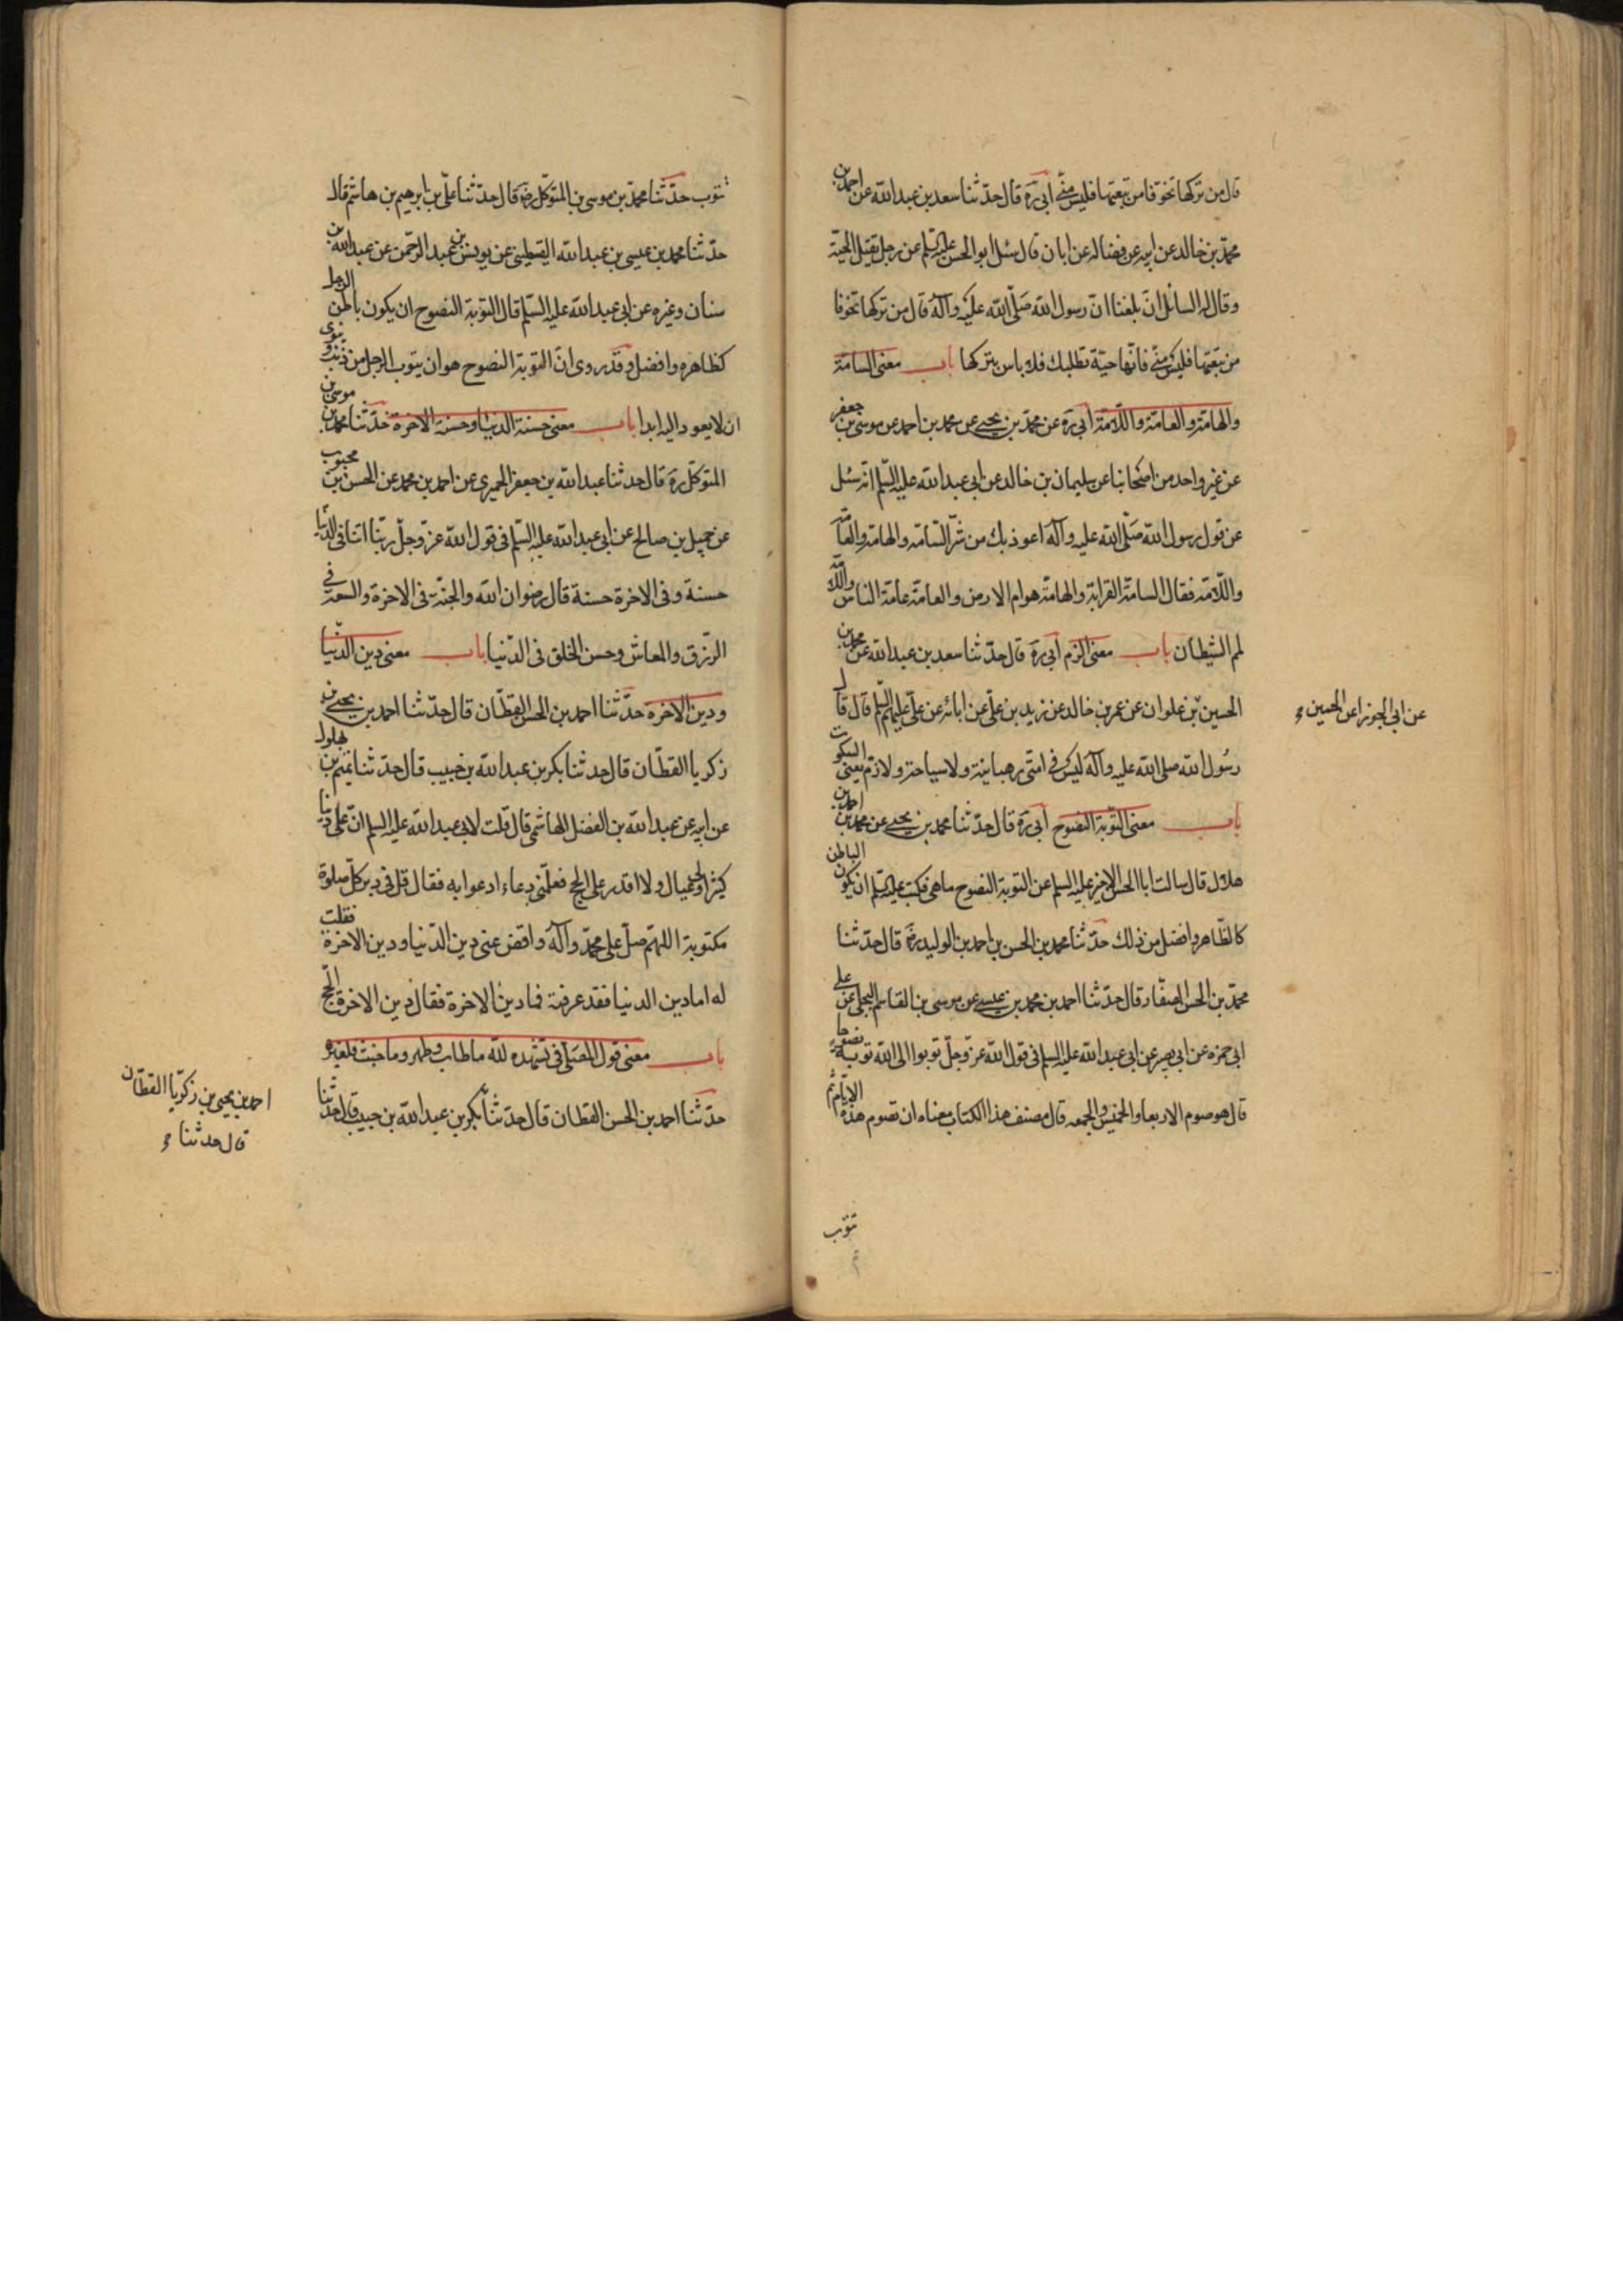 قال من تركها تخوفا من تبعتها فليس منّي أبي ره قال حدّثنا سعد بن عبد الله عن احمد بن
محمّد بن خالد عن ابيه عن فضاله عن ابان قال سئل ابو الحسن عليه السّلم عن رجل يقتل الحيّة
وقال له السائل انّ بلغنا انّ رسول الله صَلّى الله عليه وآله قال من تركها تخوفا
من تبعتها فليس منّي فانّها حيّة تطلبك فلا باس بتركها باب معنى السامّة
والهامّة والعامّة واللّامّة أبي ره عن محمّد بن يحيى عن محمد بن احمد عن موسى بن جعفر
عن غير واحد من اصحابنا عن سليمان بن خالد عن ابي عبد الله عليه السّلم انّه سئل
عن قول رسول الله صَلّى الله عليه وآله اعوذ بك من شرّ السّامّة والهامّة والعامّة
واللّامّة فقال السامّة القرابة والهامّة هوام الارض والعامّة عامة الناس واللّامّة
لمم الشيطان باب معنى الزم أبي ره قال حدّثنا سعد بن عبد الله عن محمد بن
الحسين بن علوان عن عمر بن خالد عن زيد بن علي عن ابائه عن علي عليهم السّلم قال قال
عن ابي الجوزا عن الحسين
رسُول الله صلى الله عليه وآله ليس في امتي رهبانية ولا سياحة ولا زم يعني السكوت
باب معنى التّوبة النصُوح أبي ره قال حدّثنا محمد بن يحيى عن محمد بن احمد بن
هلال قال سالت ابا الحسن الاخير عليه السلم عن التوبة النصوح ما هي فكتب عليه السّلم ان يكون الباطن
كالظّاهر وافضل من ذلك حدّثنا محمد بن الحسن بن احمد بن الوليد ره قال حدّثنا
محمّد بن الحسن الصفّار قال حدّثنا احمد بن محمد بن عيسى عن موسى بن القاسم البجلي عن علي
ابي حمزه عن ابي بصير عن ابي عبد الله عليه السلم في قول الله عزّ وجلّ توبوا الى الله توبة نصوحا
قال هو صوم الاربعا والخميس والجمعه قال مصنف هذا الكتاب معناه ان تصوم هذه الايّام ثم
تتوب
تتوب حدّثنا محمّد بن موسى بن المتوكّل ره قال حدّثنا علي بن ابرهيم بن هاشم قال
حدّثنا محمد بن عيسى بن عبد الله اليقطيني عن يونس بن عبد الرحمن عن عبد الله بن
سنان وغيره عن ابي عبد الله عليه السّلم قال التوبة النصوح ان يكون باطن الرجل
كظاهره وافضل وقد روى انّ التوبة النصوح هو ان يتوب الرجل من ذنب وينوى
ان لا يعود اليه ابدا باب معنى حسنة الدنيا وحسنة الاخرة حدّثنا محمد بن موسى بن
المتوكّل ره قال حدثنا عبد الله بن جعفر الحميري عن احمد بن محمد عن الحسن بن محبوب
عن جميل بن صالح عن ابي عبد الله عليه السّلم في قول الله عزّ وجلّ ربّنا اتنا في الدّنيا
حسنة وفي الاخرة حسنة قال رضوان الله والجنّة في الاخرة والسعة في
الرّزق والمعاش وحسن الخلق في الدّنيا باب معنى دين الدّنيا
ودين الاخرة حدّثنا احمد بن الحسن القطّان قال حدّثنا احمد بن يحيى بن
زكريا القطّان قال حدثنا بكر بن عبد الله بن حبيب قال حدّثنا تميم بن بهلول
عن ابيه عن عبد الله بن الفضل الهاشمي قال قلت لابي عبد الله عليه السلم انّ علي دينا
كثيرا ولي عيال ولا اقدر على الحج فعلّمني دعاءا ادعوا به فقال قل في دبر كلّ صلوة
مكتوبة اللهمّ صلّ على محمّد وآله واقض عنّي دين الدّنيا ودين الاخرة فقلت
له اما دين الدنيا فقد عرفته فما دين الاخرة فقال دين الاخرة الحّج
باب معنى قول المصَلّي في تشهده لله ما طاب وطهر وما خبث فلغيره
حدّثنا احمد بن الحسن القطان قال حدّثنا بكر بن عبد الله بن حبيب قال حدّثنا
احمد بن يحيى بن زكريّا القطّان
قال حدثنا